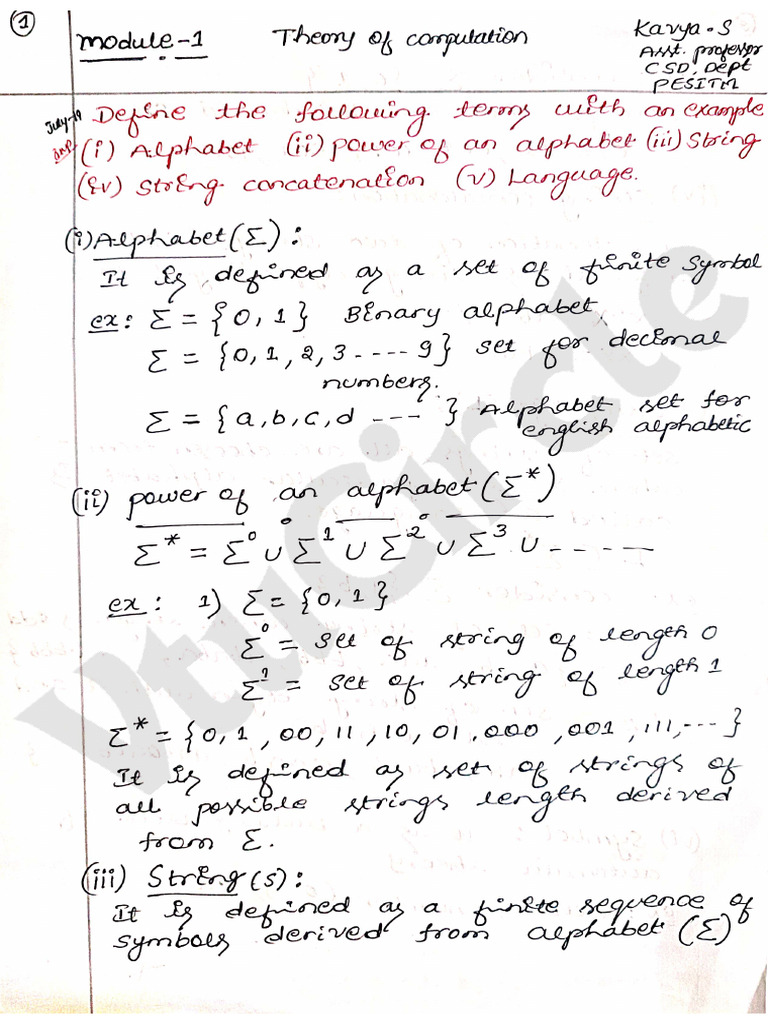 ①
Module-1
Theory of computation
Kavya.S
Asst. professor
CSD, Dept
PESITM
July-19
imp
Define the following terms with an example
(i) Alphabet (ii) power of an alphabet (iii) String
(iv) String concatenation (v) Language.
(i) Alphabet (Σ) :
It is defined as a set of finite symbol
ex: Σ = {0, 1} Binary alphabet
Σ = {0, 1, 2, 3 ---- 9} set for decimal
numbers.
Σ = {a, b, c, d ---- } Alphabet set for
english alphabetic
(ii) power of an alphabet (Σ*)
Σ* = Σ⁰ ∪ Σ¹ ∪ Σ² ∪ Σ³ ∪ - - - - -
ex : 1) Σ = {0, 1}
Σ⁰ = set of string of length 0
Σ¹ = set of string of length 1
Σ* = {0, 1, 00, 11, 10, 01, 000, 001, 111, --- }
It is defined as set of strings of
all possible strings length derived
from Σ.
(iii) String (s) :
It is defined as a finite sequence of
symbols derived from alphabet (Σ)
VtuCircle